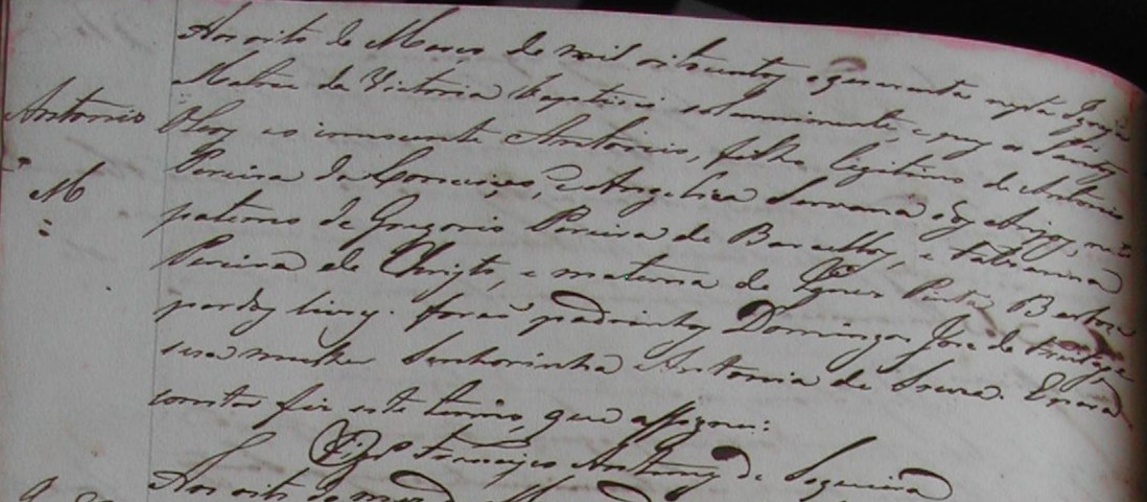 Aos oito de Março de mil oitocentos e quarenta nesta Igreja
Matriz da Victoria baptizei solemnimente, e puz os Santos
Antonio
Oleos ao innocente Antonio, filho legitimo de Antonio
M
Pereira da Conceição, e Angelica Severa dos Anjos, neto
paterno de Gregorio Pereira de Barcellos, e Tatianna
Pereira de Christo, e materno de Ignes Pinta Barboza
pardos livres. Forão padrinhos Domingos Jose de Freitas, e
sua mulher Senhorinha Antonia de Souza. E para
constar fiz este termo, que assignei:
Francisco Antunes de Sequeira
Aos oito de